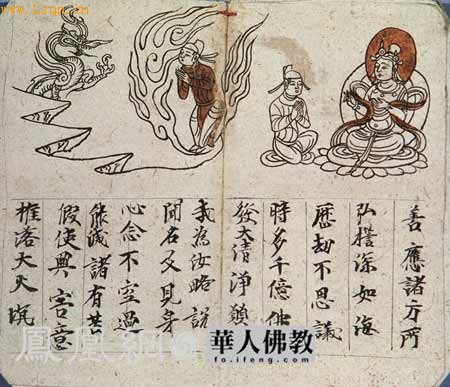 善應諸方所
弘誓深如海
歷劫不思議
時多千億佛
發大清淨願
我為汝略說
聞名又見身
心念不空過
能滅諸有苦
假使興害意
推落大火坑
鳳凰網
華人佛教
fo.ifeng.com